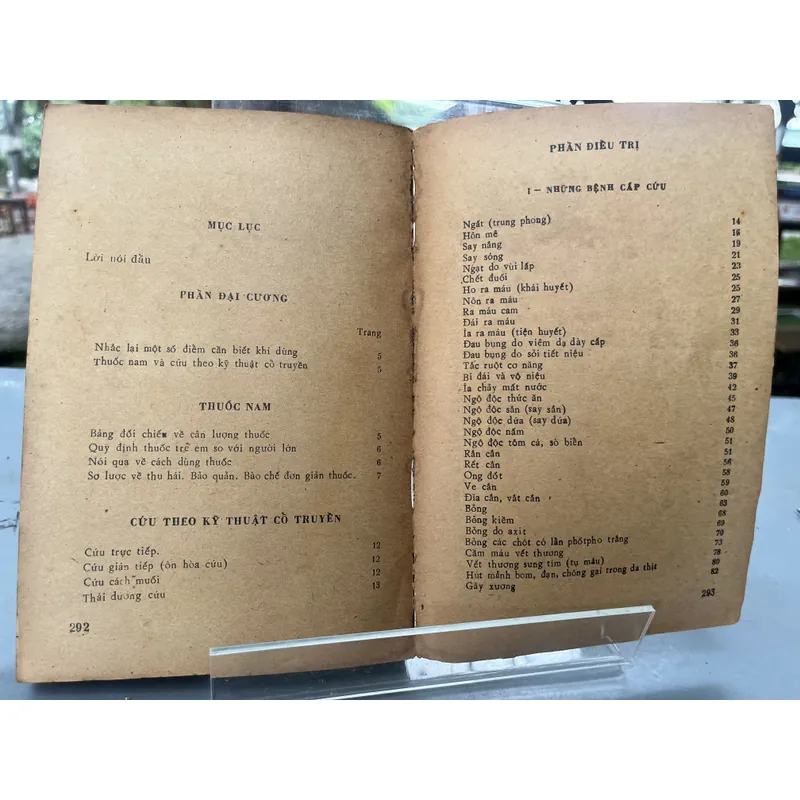 MỤC LỤC
Lời nói đầu
PHẦN ĐẠI CƯƠNG
Trang
Nhắc lại một số điểm cần biết khi dùng 5
Thuốc nam và cứu theo kỹ thuật cổ truyền 5
THUỐC NAM
Bảng đối chiếu về cân lượng thuốc 5
Quy định thuốc trẻ em so với người lớn 6
Nói qua về cách dùng thuốc 6
Sơ lược về thu hái. Bảo quản. Bào chế đơn giản thuốc. 7
CỨU THEO KỸ THUẬT CỔ TRUYỀN
Cứu trực tiếp. 12
Cứu gián tiếp (ôn hòa cứu) 12
Cứu cách muối 12
Thái dương cứu 13
292
PHẦN ĐIỀU TRỊ
I - NHỮNG BỆNH CẤP CỨU
Ngất (trung phong) 14
Hôn mê 16
Say nắng 19
Say sóng 21
Ngạt do vùi lấp 23
Chết đuối 25
Ho ra máu (khái huyết) 25
Nôn ra máu 27
Ra máu cam 29
Đái ra máu 31
Ỉa ra máu (tiện huyết) 33
Đau bụng do viêm dạ dày cấp 36
Đau bụng do sỏi tiết niệu 36
Tắc ruột cơ năng 37
Bí đái và vô niệu 39
Ỉa chảy mất nước 42
Ngộ độc thức ăn 45
Ngộ độc sắn (say sắn) 47
Ngộ độc dứa (say dứa) 48
Ngộ độc nấm 50
Ngộ độc tôm cá, sò biển 51
Rắn cắn 51
Rết cắn 56
Ong đốt 58
Ve cắn 59
Đỉa cắn, vắt cắn 60
Bỏng 63
Bỏng kiềm 68
Bỏng do axit 70
Bỏng các chót có lẫn phốtpho trắng 73
Cầm máu vết thương 78
Vết thương sung tím (tụ máu) 80
Hút mảnh bom, đạn, chông gai trong da thịt 82
Gãy xương
293